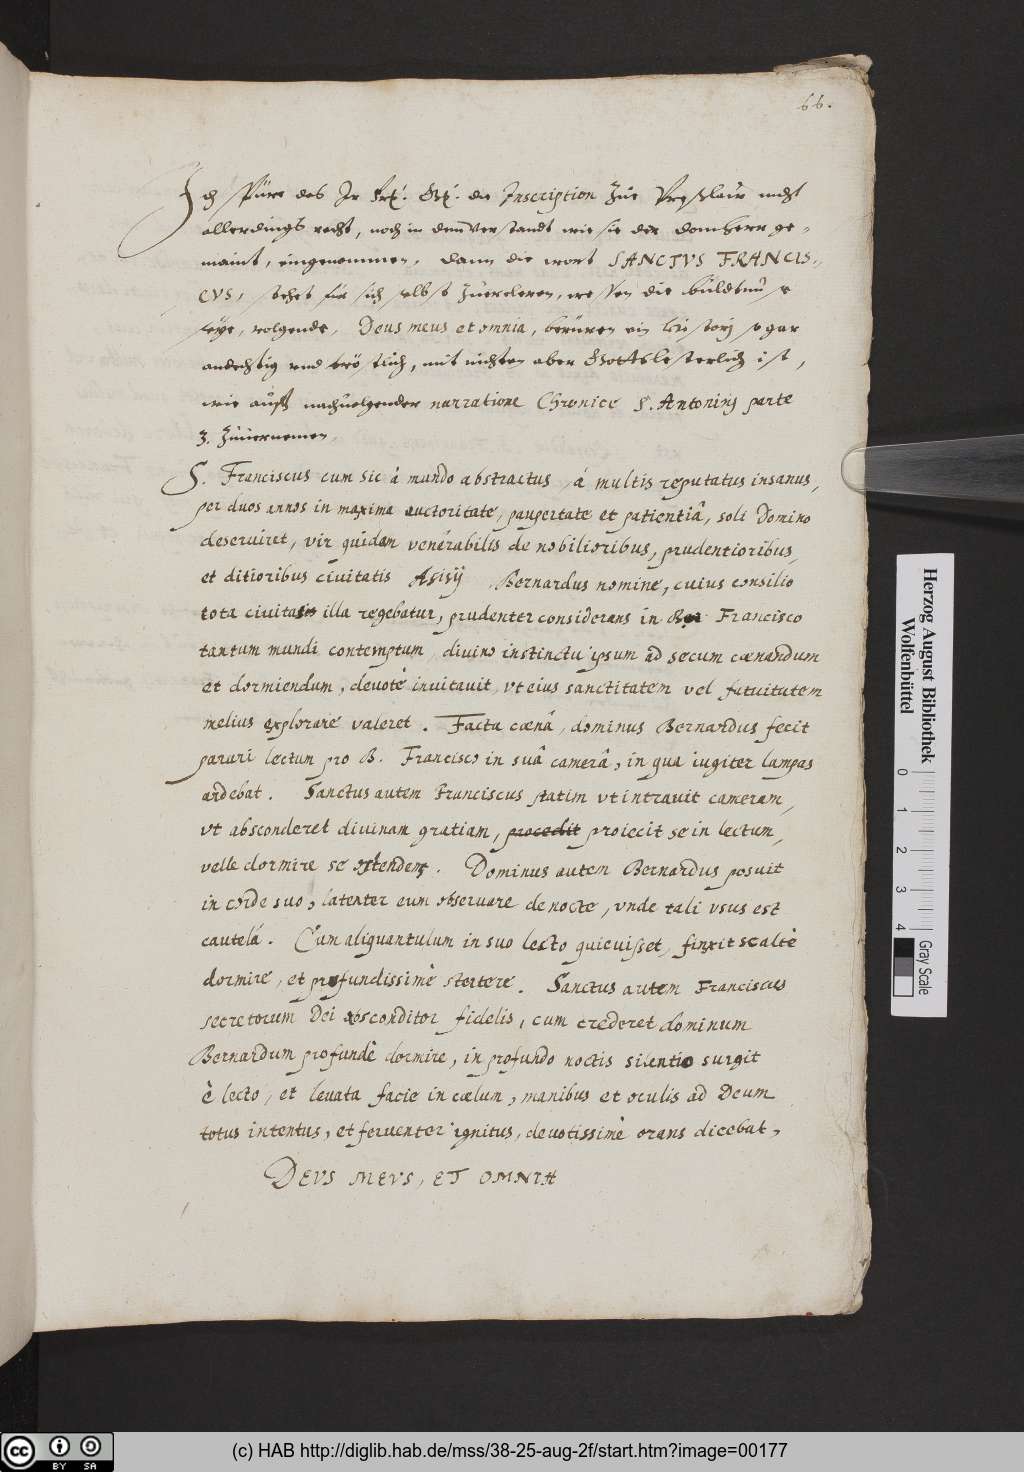 66.
Ich spüre das Ir Frl. Gl. die Inscription Zue Preßlaw nicht
allerdings recht, noch in dem Verstandt wie sie der domherr ge-
maint, eingenommen, dann die wort SANCTVS FRANCIS-
CVS, stehet für sich selbst Zuercleren, wessen die bildtnuß
seye, volgende, Deus meus et omnia, berüren ein history so gar
andechtig und tröstlich, mit nichten aber Gottslesterlich ist,
wie auß nachuolgender narratione Chronice S. Antoninj parte
3. Zuuernemen.
S. Franciscus cum sic à mundo abstractus, á multis reputatus insanus,
per duos annos in maxima auctoritate, paupertate et patientiâ, soli Domino
deseruiret, vir quidam venerabilis de nobilioribus, prudentioribus,
et ditioribus ciuitatis Asisij Bernardus nomine, cuius consilio
tota ciuitas illa regebatur, prudenter considerans in Francisco
tantum mundi contemptum, diuino instinctu ipsum ad secum cœnandum
et dormiendum, deuotè inuitauit, vt eius sanctitatem vel fatuitatem
melius explorare valeret. Facta cœnâ, dominus Bernardus fecit
parari lectum pro B. Francisco in suâ camerâ, in qua iugiter lampas
ardebat. Sanctus autem Franciscus statim vt intrauit cameram,
vt absconderet diuinam gratiam, procedit proiecit se in lectum,
velle dormire se ostendens. Dominus autem Bernardus posuit
in corde suo, latenter eum obseruare de nocte, vnde tali vsus est
cautelâ. Cum aliquantulum in suo lecto quieuisset, finxit se altè
dormire, et profundissimè stertere. Sanctus autem Franciscus
secretorum Dei absconditor fidelis, cum crederet dominum
Bernardum profundè dormire, in profundo noctis silentio surgit
è lecto, et leuata facie in cœlum, manibus et oculis ad Deum
totus intentus, et feruenter ignitus, deuotissimè orans dicebat,
DEVS MEVS, ET OMNIA
Herzog August Bibliothek
Wolfenbüttel
0 1 2 3 4
Gray Scale
cc BY SA
(c) HAB http://diglib.hab.de/mss/38-25-aug-2f/start.htm?image=00177